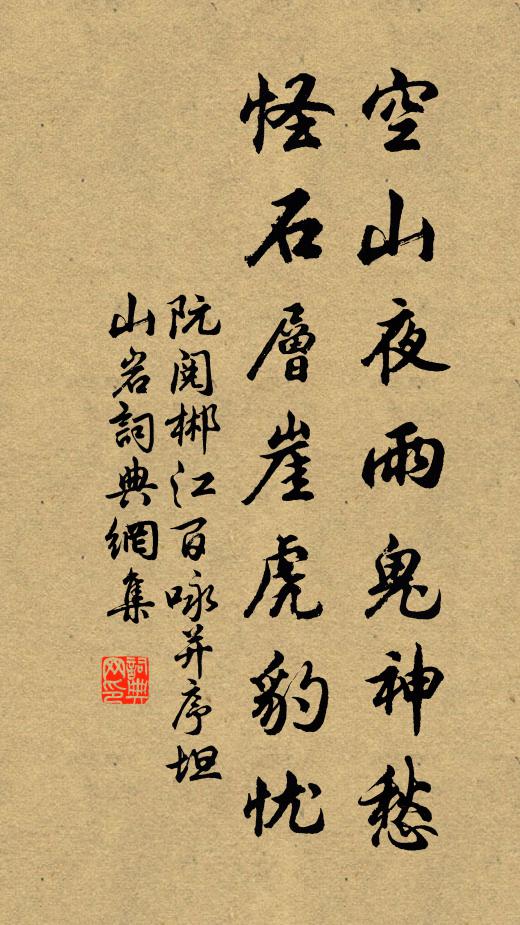 空山夜雨鬼神愁
怪石層崖虎豹忧
阮閱郴江百咏并序坦
山岩詞典網集
詞典网印